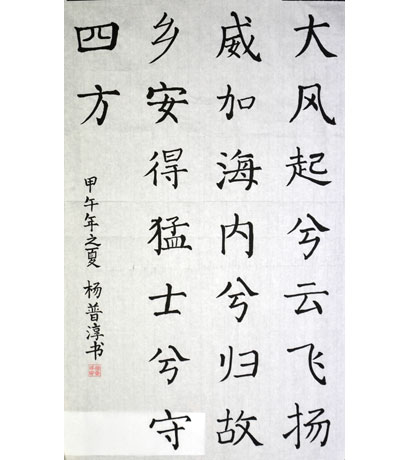 大风起兮云飞扬
威加海内兮归故
乡安得猛士兮守
四方
甲午年之夏 杨普淳书